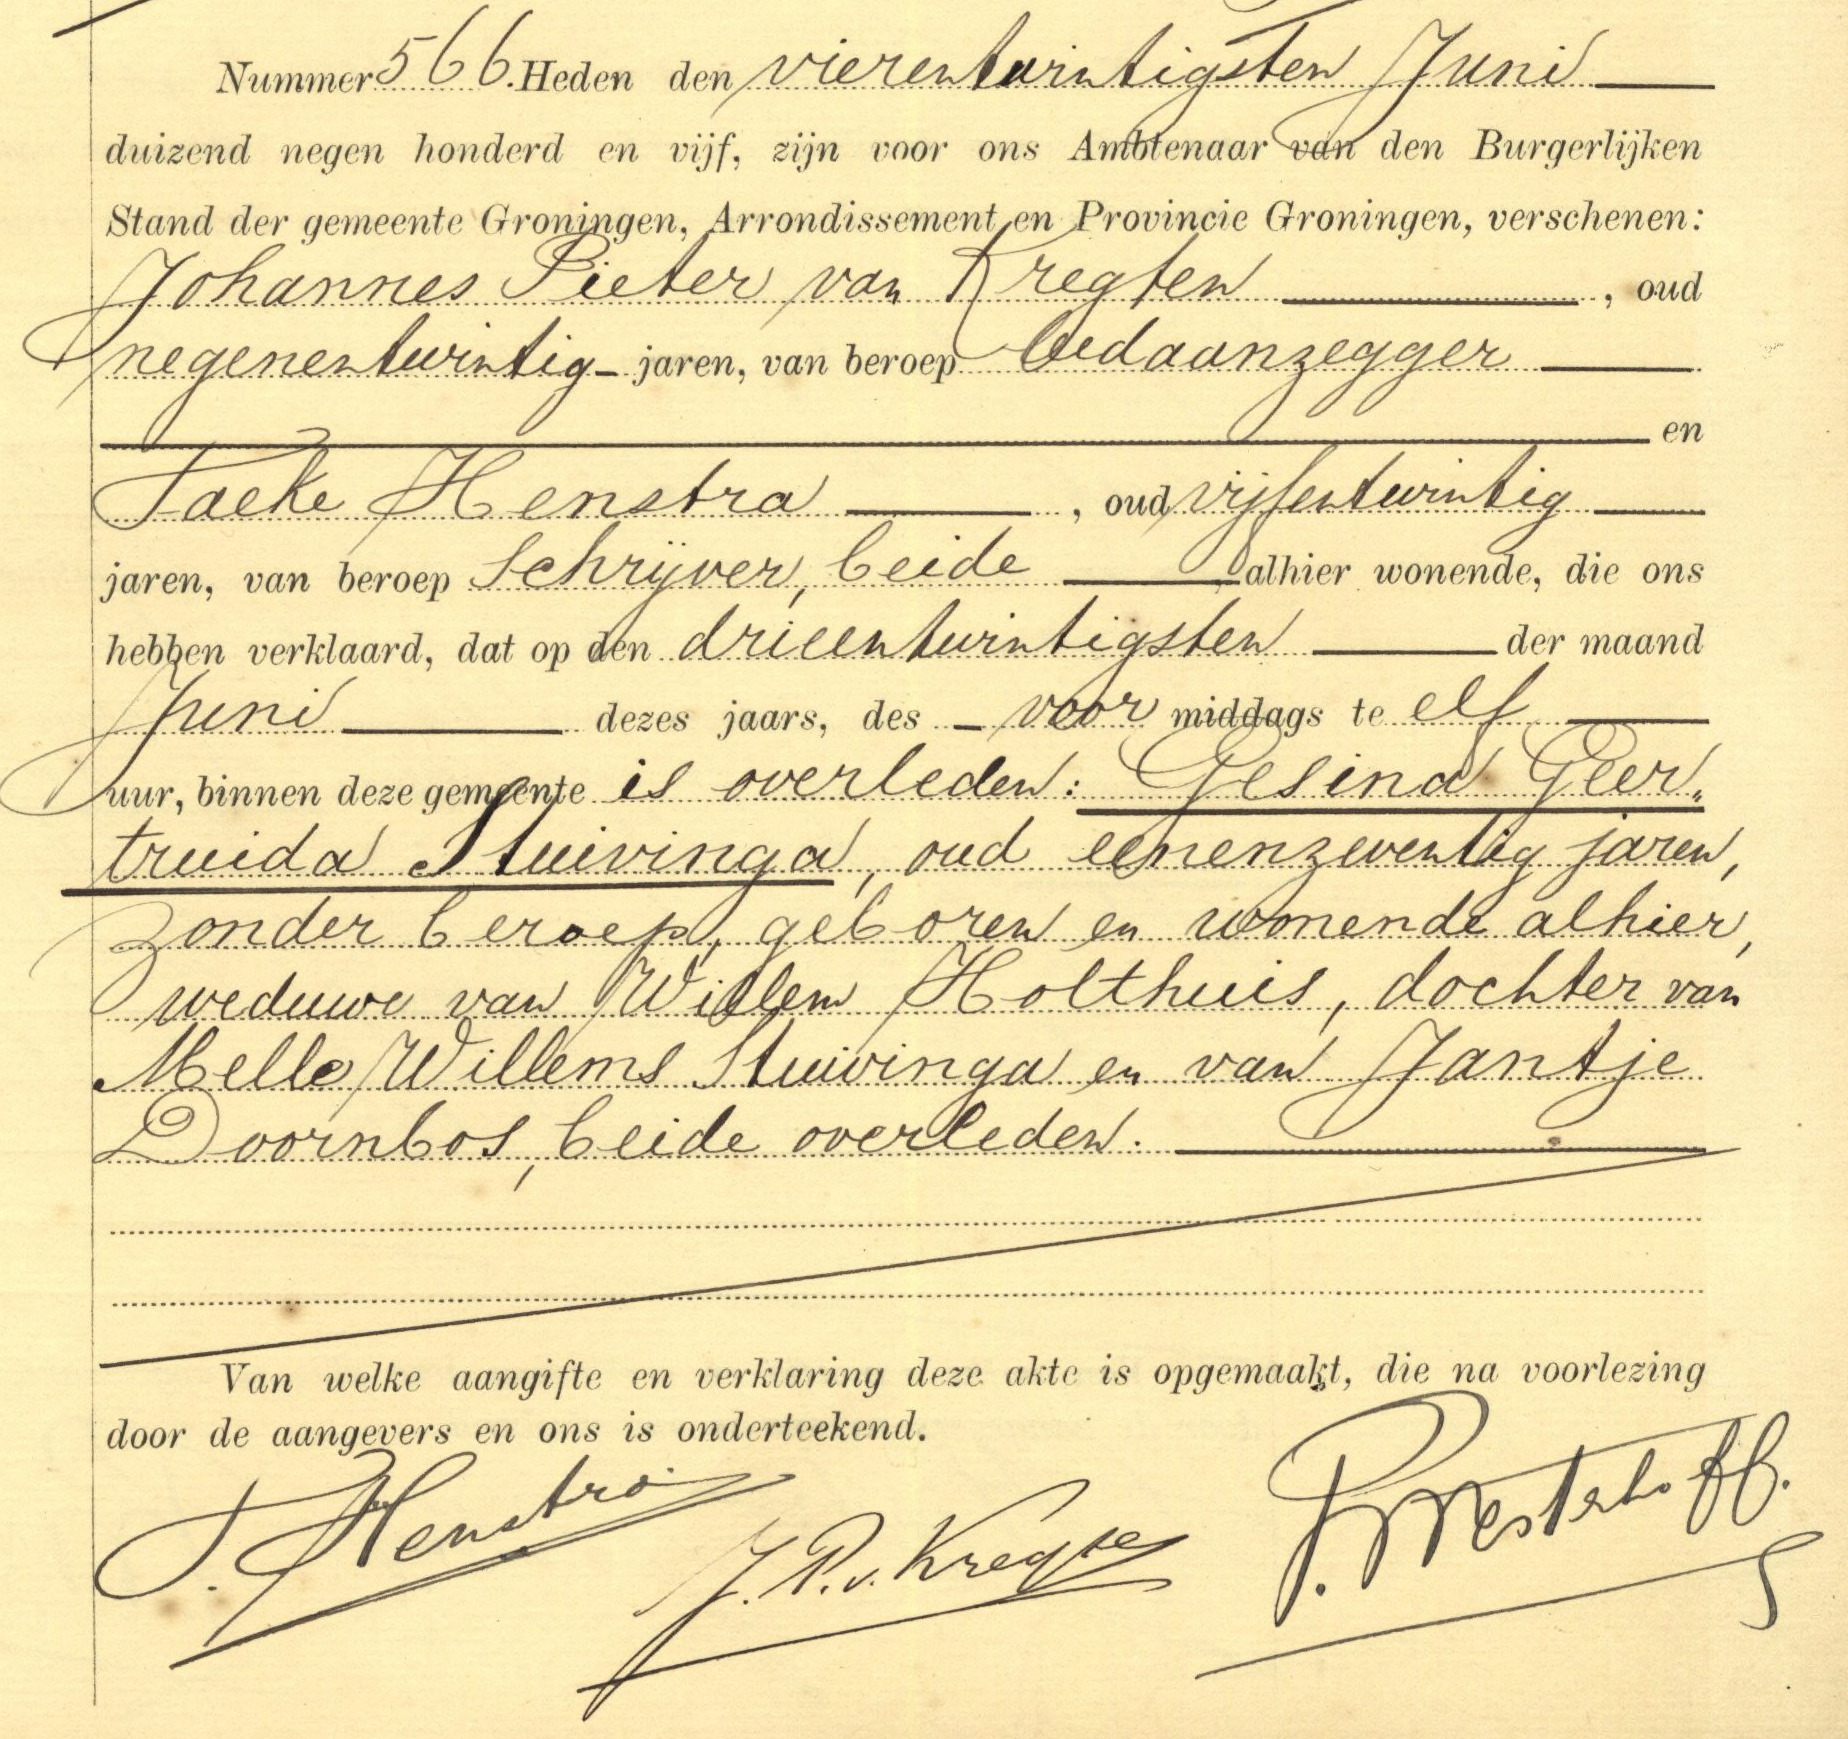 Nummer 566. Heden den vierentwintigsten Juni
duizend negen honderd en vijf, zijn voor ons Ambtenaar van den Burgerlijken
Stand der gemeente Groningen, Arrondissement en Provincie Groningen, verschenen:
Johannes Pieter van Kregten, oud
negenentwintig jaren, van beroep bedaanzegger
en
Taeke Henstra, oud vijfentwintig
jaren, van beroep schrijver, beide alhier wonende, die ons
hebben verklaard, dat op den drieentwintigsten der maand
Juni dezes jaars, des voor middags te elf
uur, binnen deze gemeente is overleden: Gesina Geer„
truida Stuivinga, oud eenenzeventig jaren,
zonder beroep, geboren en wonende alhier,
weduwe van Willem Holthuis, dochter van
Melle Willems Stuivinga en van Jantje
Doornbos, beide overleden.
Van welke aangifte en verklaring deze akte is opgemaakt, die na voorlezing
door de aangevers en ons is onderteekend.
T. Henstra J. P. v. Kregten P. Westerhoff